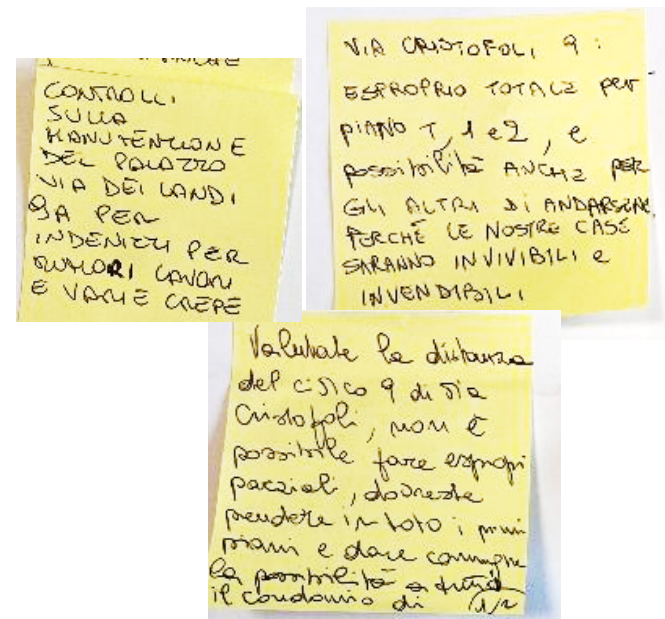 CONTROLLI
SULLA
MANUTENZIONE
DEL PALAZZO
VIA DEI LANDI
9A PER
INDENIZZI PER
LAVORI
E VARIE CREPE
VIA CRISTOFOLI 9:
ESPROPRIO TOTALE per
PIANO T, 1 e 2, e
possibilità ANCHE PER
GLI ALTRI DI ANDARSENE
PERCHÉ LE NOSTRE CASE
SARANNO INVIVIBILI e
INVENDIBILI
Valutate la distanza
del civico 9 di via
Cristofoli, non è
possibile fare espropri
parziali, dovreste
prendere in toto i primi
piani e dare comunque
la possibilità a tutto
il condominio di